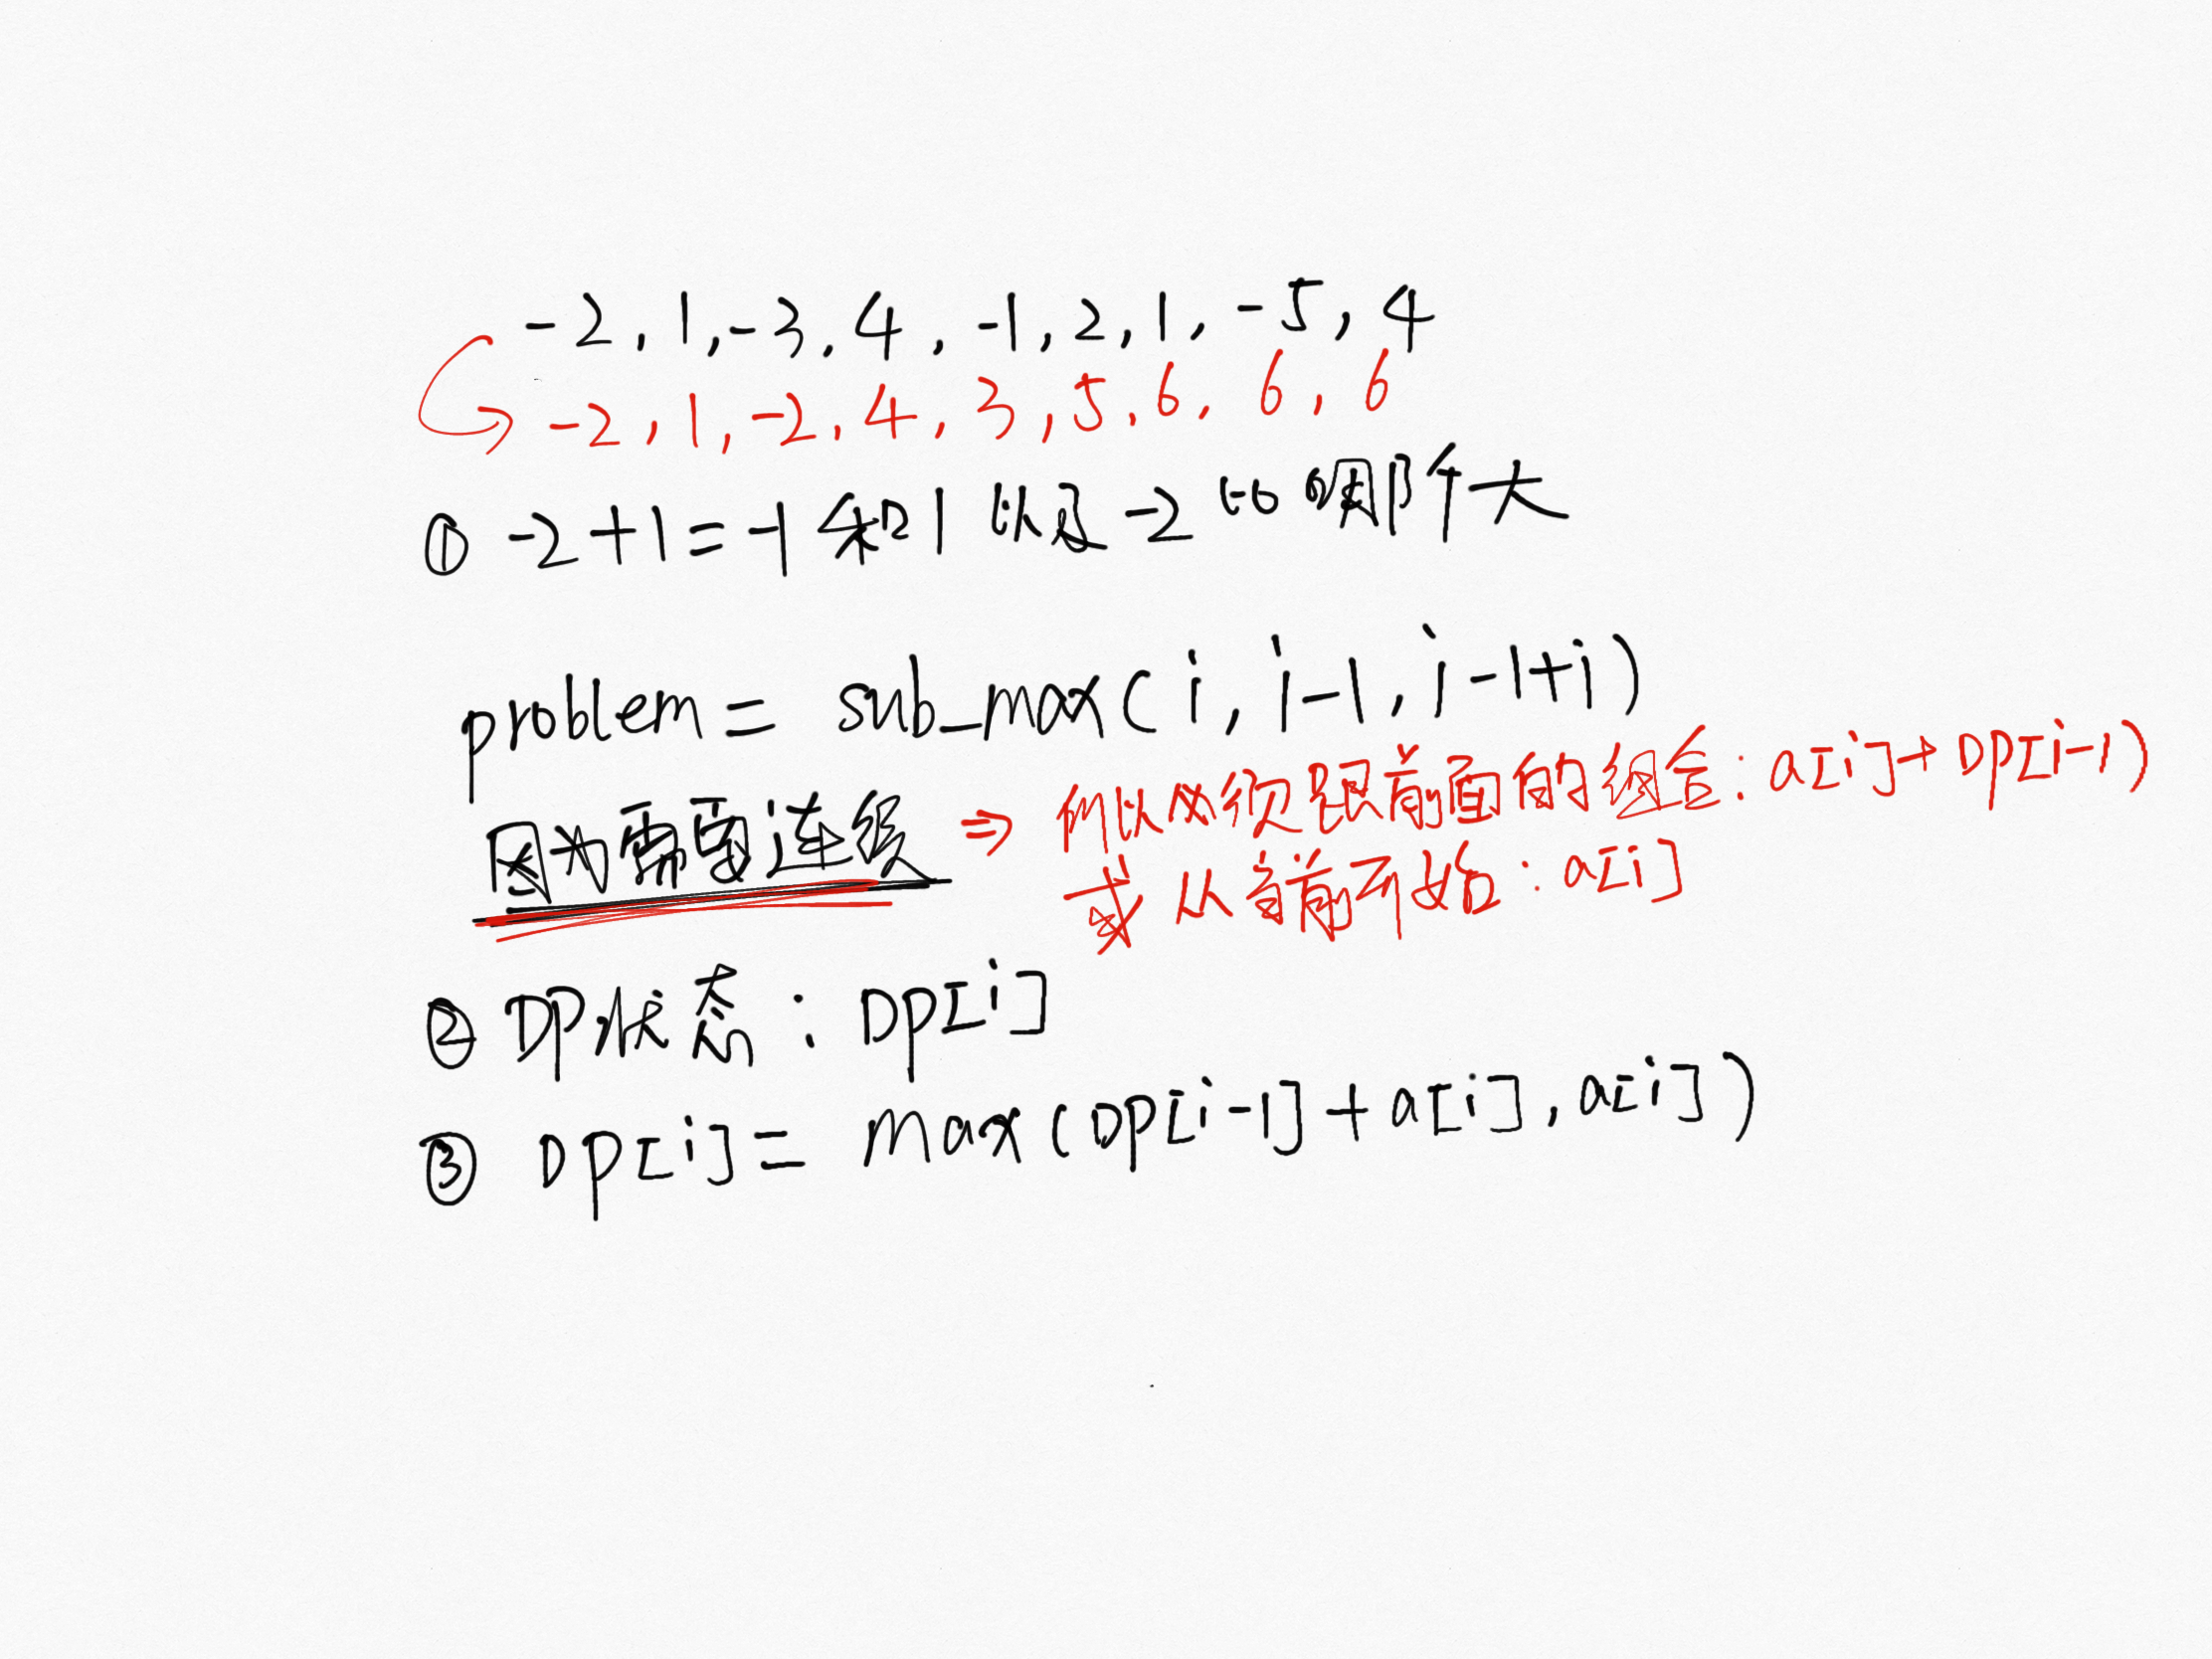 -2, 1, -3, 4, -1, 2, 1, -5, 4
-2, 1, -2, 4, 3, 5, 6, 6, 6
① -2+1=-1 和1 以及-2 比哪个大
problem = sub_max(i, i-1, i-1+i)
因为需要连续 ⇒ 所以必须跟前面的组合: a[i]+DP[i-1)
或从当前开始: a[i]
② DP状态: DP[i]
③ DP[i] = max(DP[i-1]+a[i], a[i])